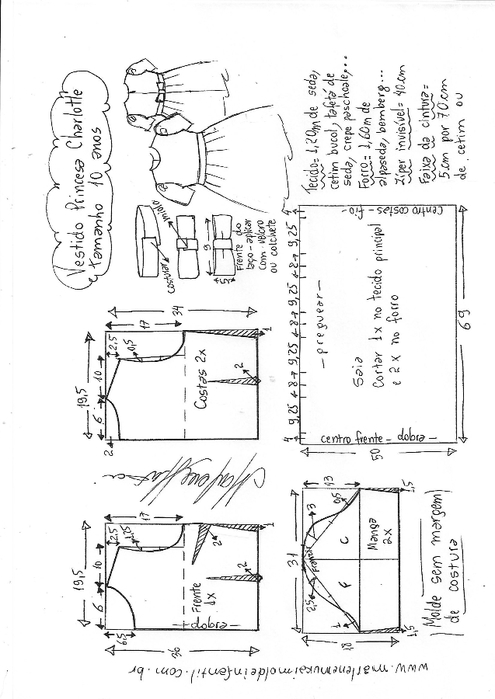 Vestido Princesa Charlotte
tamanho 10 anos
miolo
costurar
9
5
Frente do
laço-aplicar
com velcro
ou colchete
Tecido= 1,20m de seda,
cetim bucol, tafetá de
seda, crepe paschoale,...
Forro= 1,60m de
alpaseda, bemberg...
Zíper invisível= 40cm
Faixa da cintura=
5cm por 70cm
de cetim ou
19,5
6
10
2
2,5
0,5
17
34
Costas 2x
2
1
4 9,25 8 9,25 8 9,25 8 9,25 8 9,25 4
- preguear -
Centro costas - fio -
Saia
Cortar 1x no tecido principal
e 2x no forro
centro frente - dobra -
50
69
19,5
6
10
6,5
2,5
17
36
Frente
1x
- dobra -
2
2
1
31
13
18
2,5
3
0,5
1
franzir
F
C
Manga
2x
1,5
1,5
Molde sem margem
de costura
www.marlenemukaimoldeinfantil.com.br